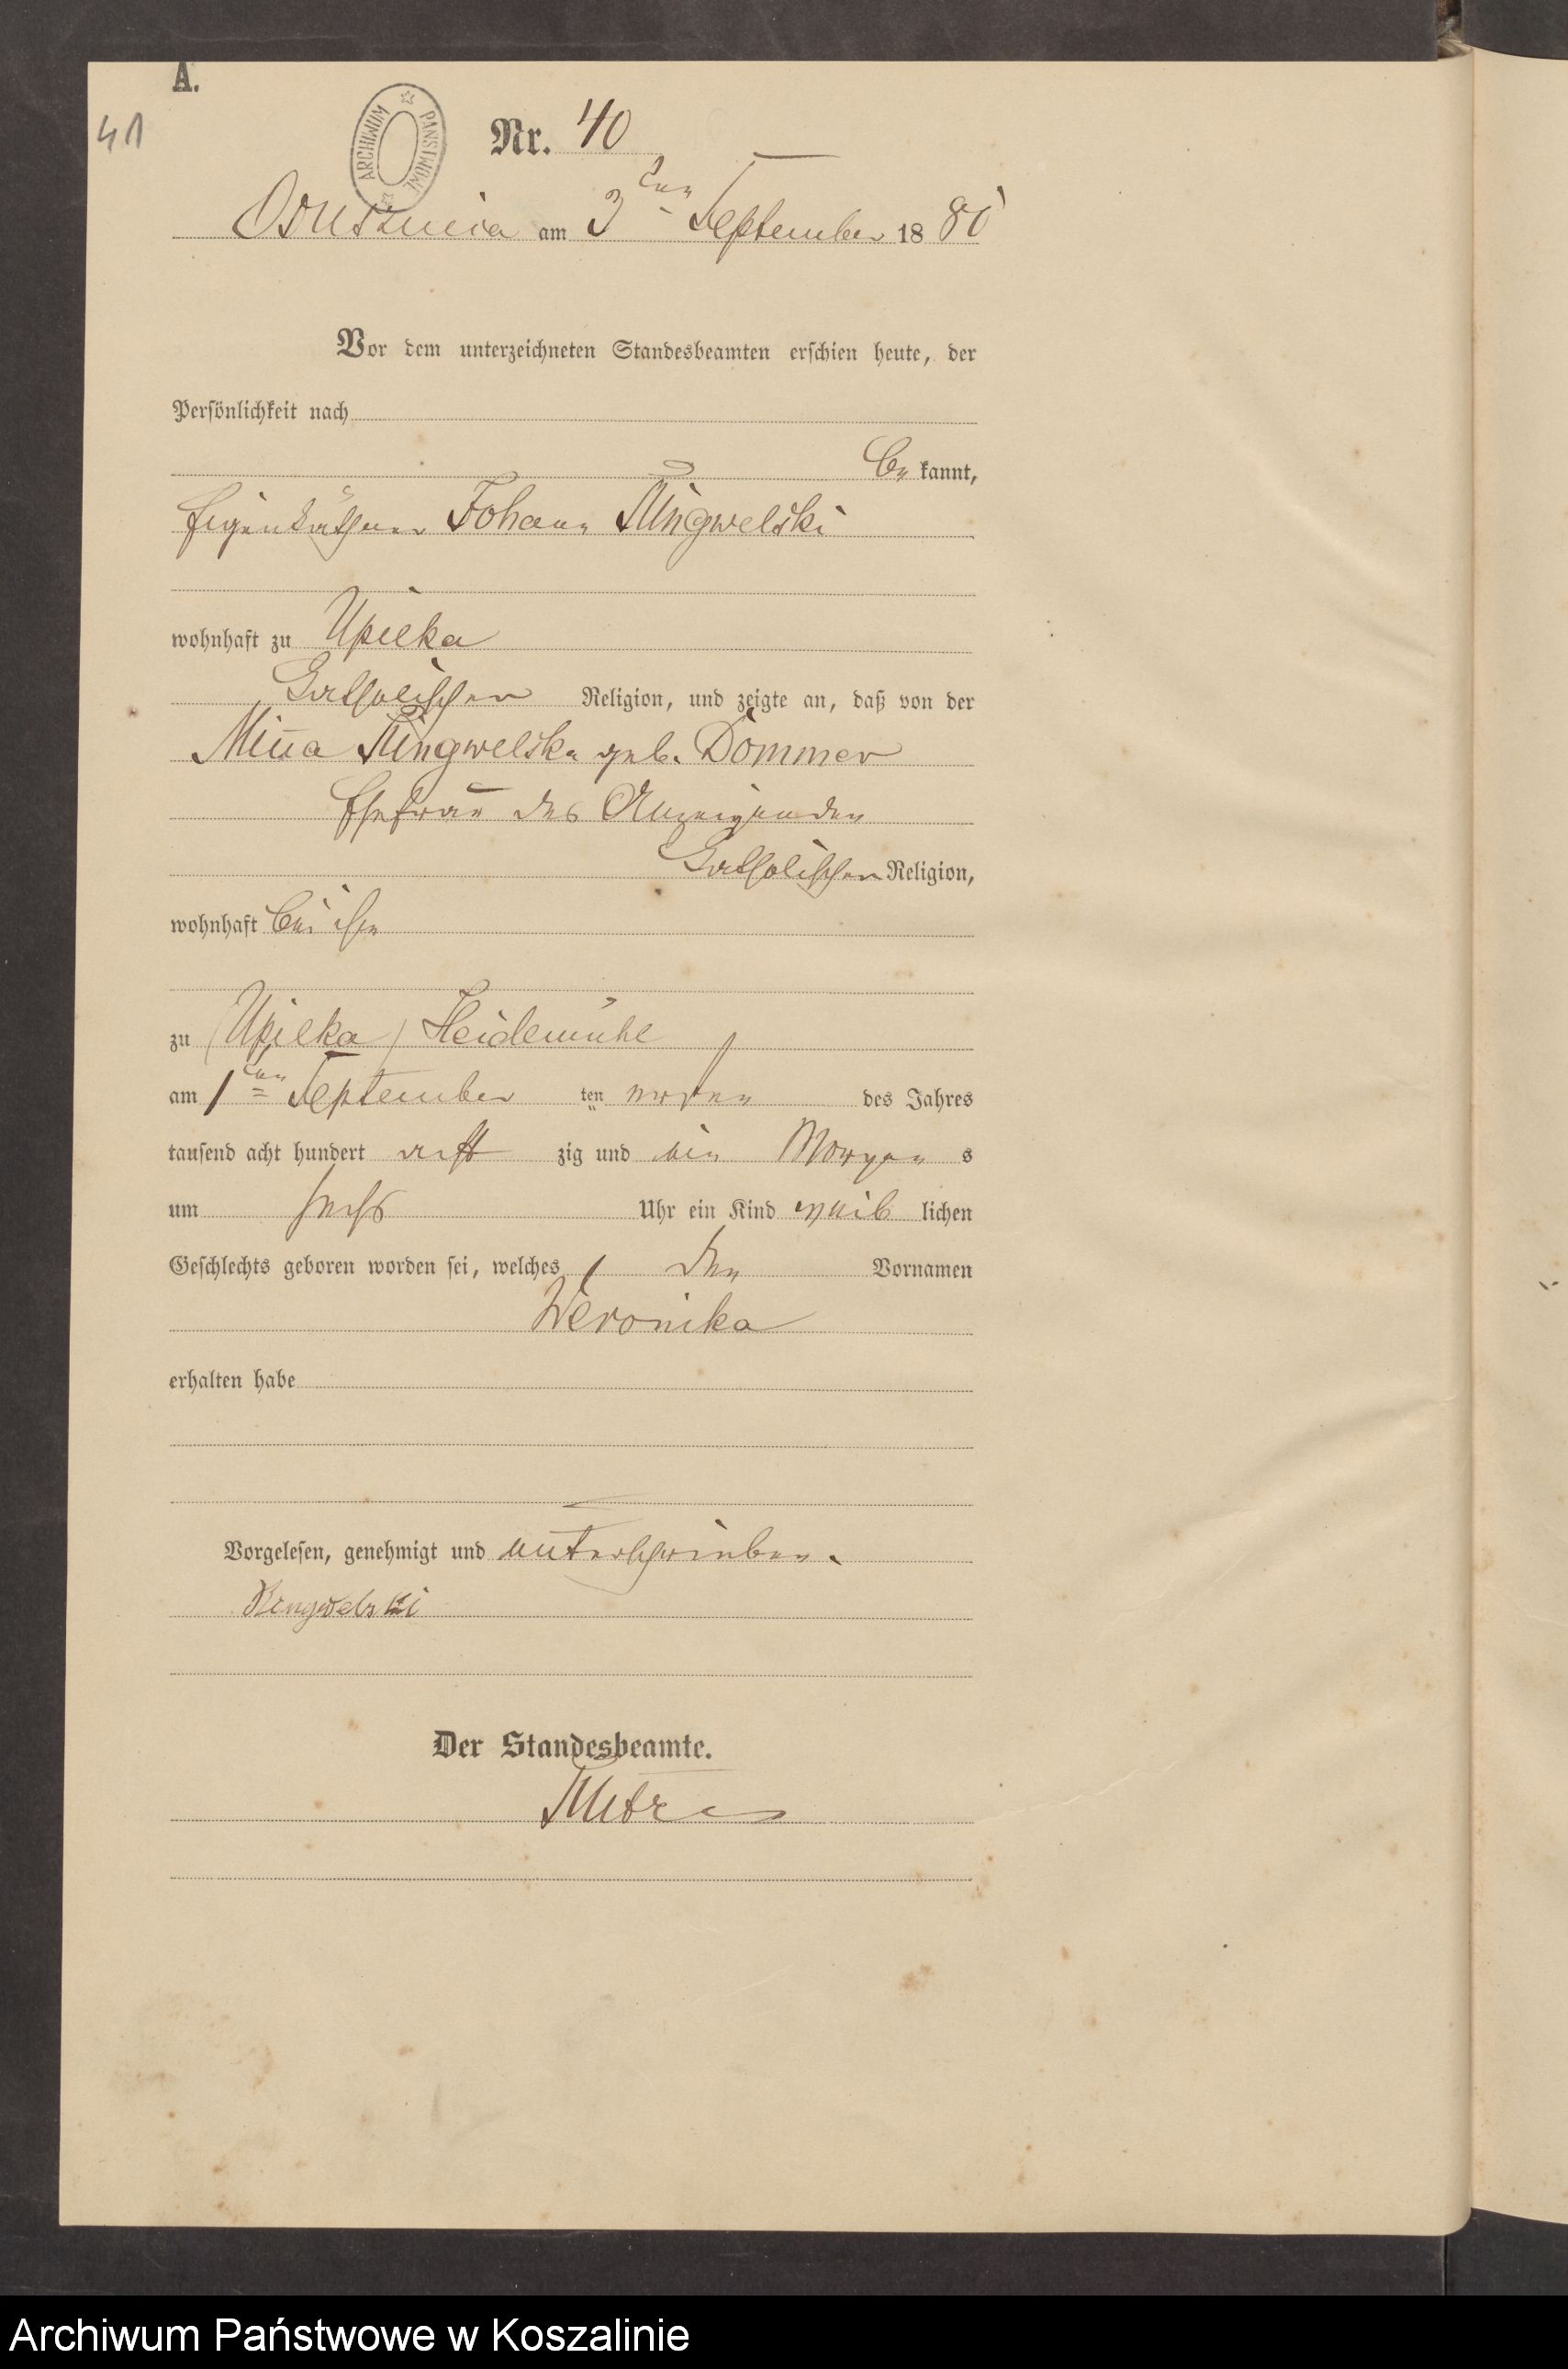 A.
41
ARCHIWUM PAŃSTWOWE
Nr. 40
am 3ten September 18 80
Vor dem unterzeichneten Standesbeamten erschien heute, der
Persönlichkeit nach
be kannt,
Eigenkäthner Johann Kingwelski
wohnhaft zu Upilka
katholischer Religion, und zeigte an, daß von der
Minna Kingwelska geb. Dommer
Ehefrau des Anzeigenden
katholischer Religion,
wohnhaft bei ihm
zu (Upilka) Heidemühl
am 1ten September ten des Jahres
tausend acht hundert acht zig und Morgen s
um sechs Uhr ein Kind weib lichen
Geschlechts geboren worden sei, welches den Vornamen
Weronika
erhalten habe
Vorgelesen, genehmigt und unterschrieben.
Kingwelski
Der Standesbeamte.
Archiwum Państwowe w Koszalinie